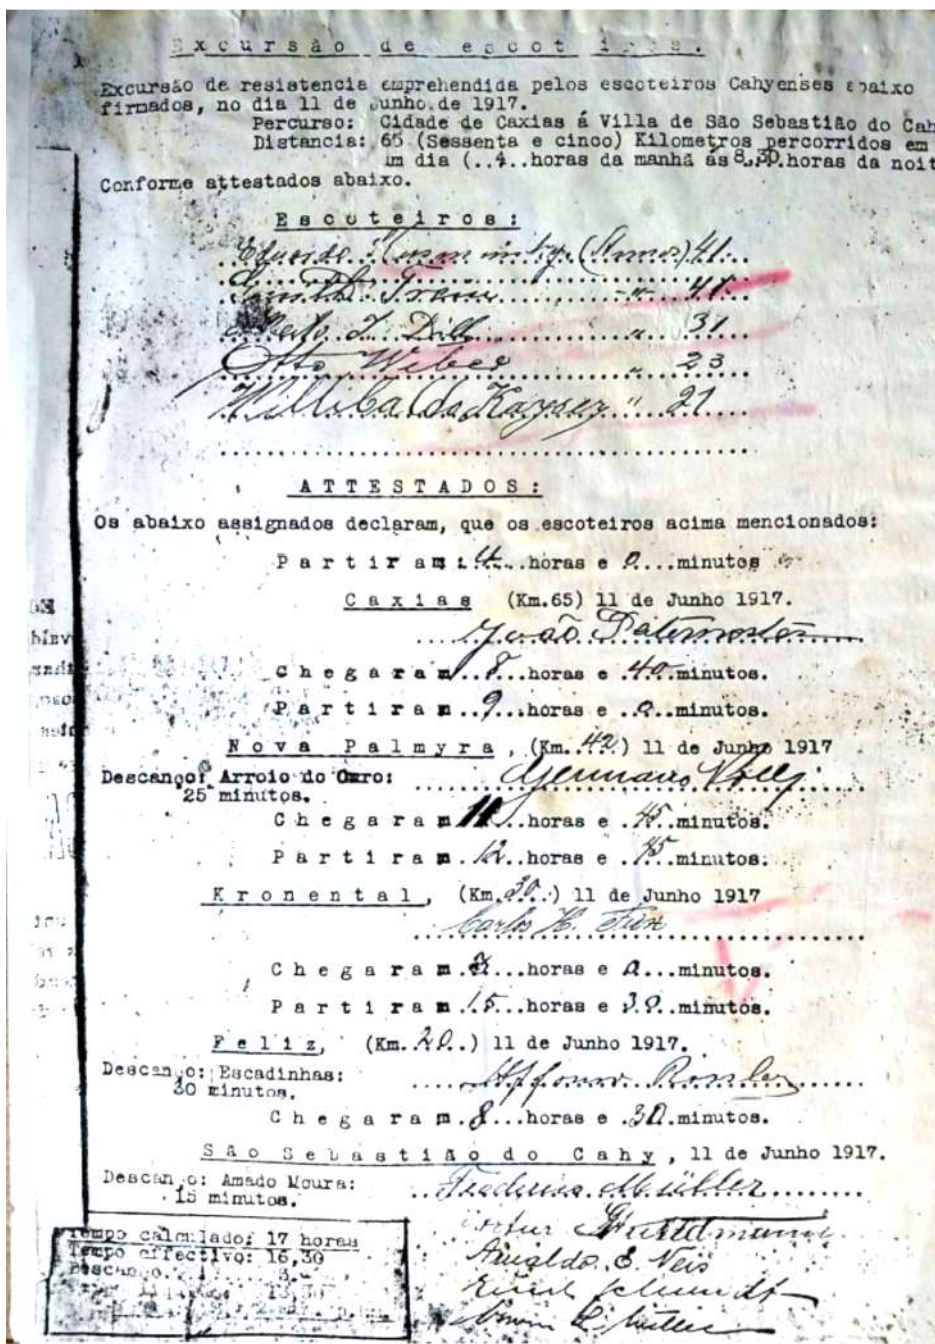 Excursão de escoteiros.
Excursão de resistencia emprehendida pelos escoteiros Cahyenses abaixo
firmados, no dia 11 de Junho de 1917.
Percurso: Cidade de Caxias á Villa de São Sebastião do Cah
Distancia: 65 (Sessenta e cinco) Kilometros percorridos em
um dia (..4..horas da manhã ás 8,30.horas da noit
Conforme attestados abaixo.
Escoteiros:
(Annos) 41
Trein " 41
J. Dill " 31
Otto Weber " 23
Willibaldo Kayser " 21
ATTESTADOS:
Os abaixo assignados declaram, que os escoteiros acima mencionados:
Partiram: 4...horas e 0...minutos
Caxias (Km.65) 11 de Junho 1917.
João Paternoster
Chegaram..8...horas e .40.minutos.
Partiram..9...horas e ..0..minutos.
Nova Palmyra, (Km. 42.) 11 de Junho 1917
Descanço: Arroio do Ouro:
25 minutos.
Chegaram 11...horas e .45.minutos.
Partiram.12..horas e .45.minutos.
Kronental, (Km.30..) 11 de Junho 1917
Carlos H.
Chegaram...horas e 0...minutos.
Partiram.15..horas e 30.minutos.
Feliz, (Km..20..) 11 de Junho 1917.
Descanço: Escadinhas:
30 minutos.
Chegaram.8...horas e .30..minutos.
São Sebastião do Cahy, 11 de Junho 1917.
Descanço: Amado Moura:
15 minutos.
Frederico Müller
Arnaldo E. Neis
Schmidt
Tempo calculado: 17 horas
Tempo effectivo: 16,30
Descanço. 3